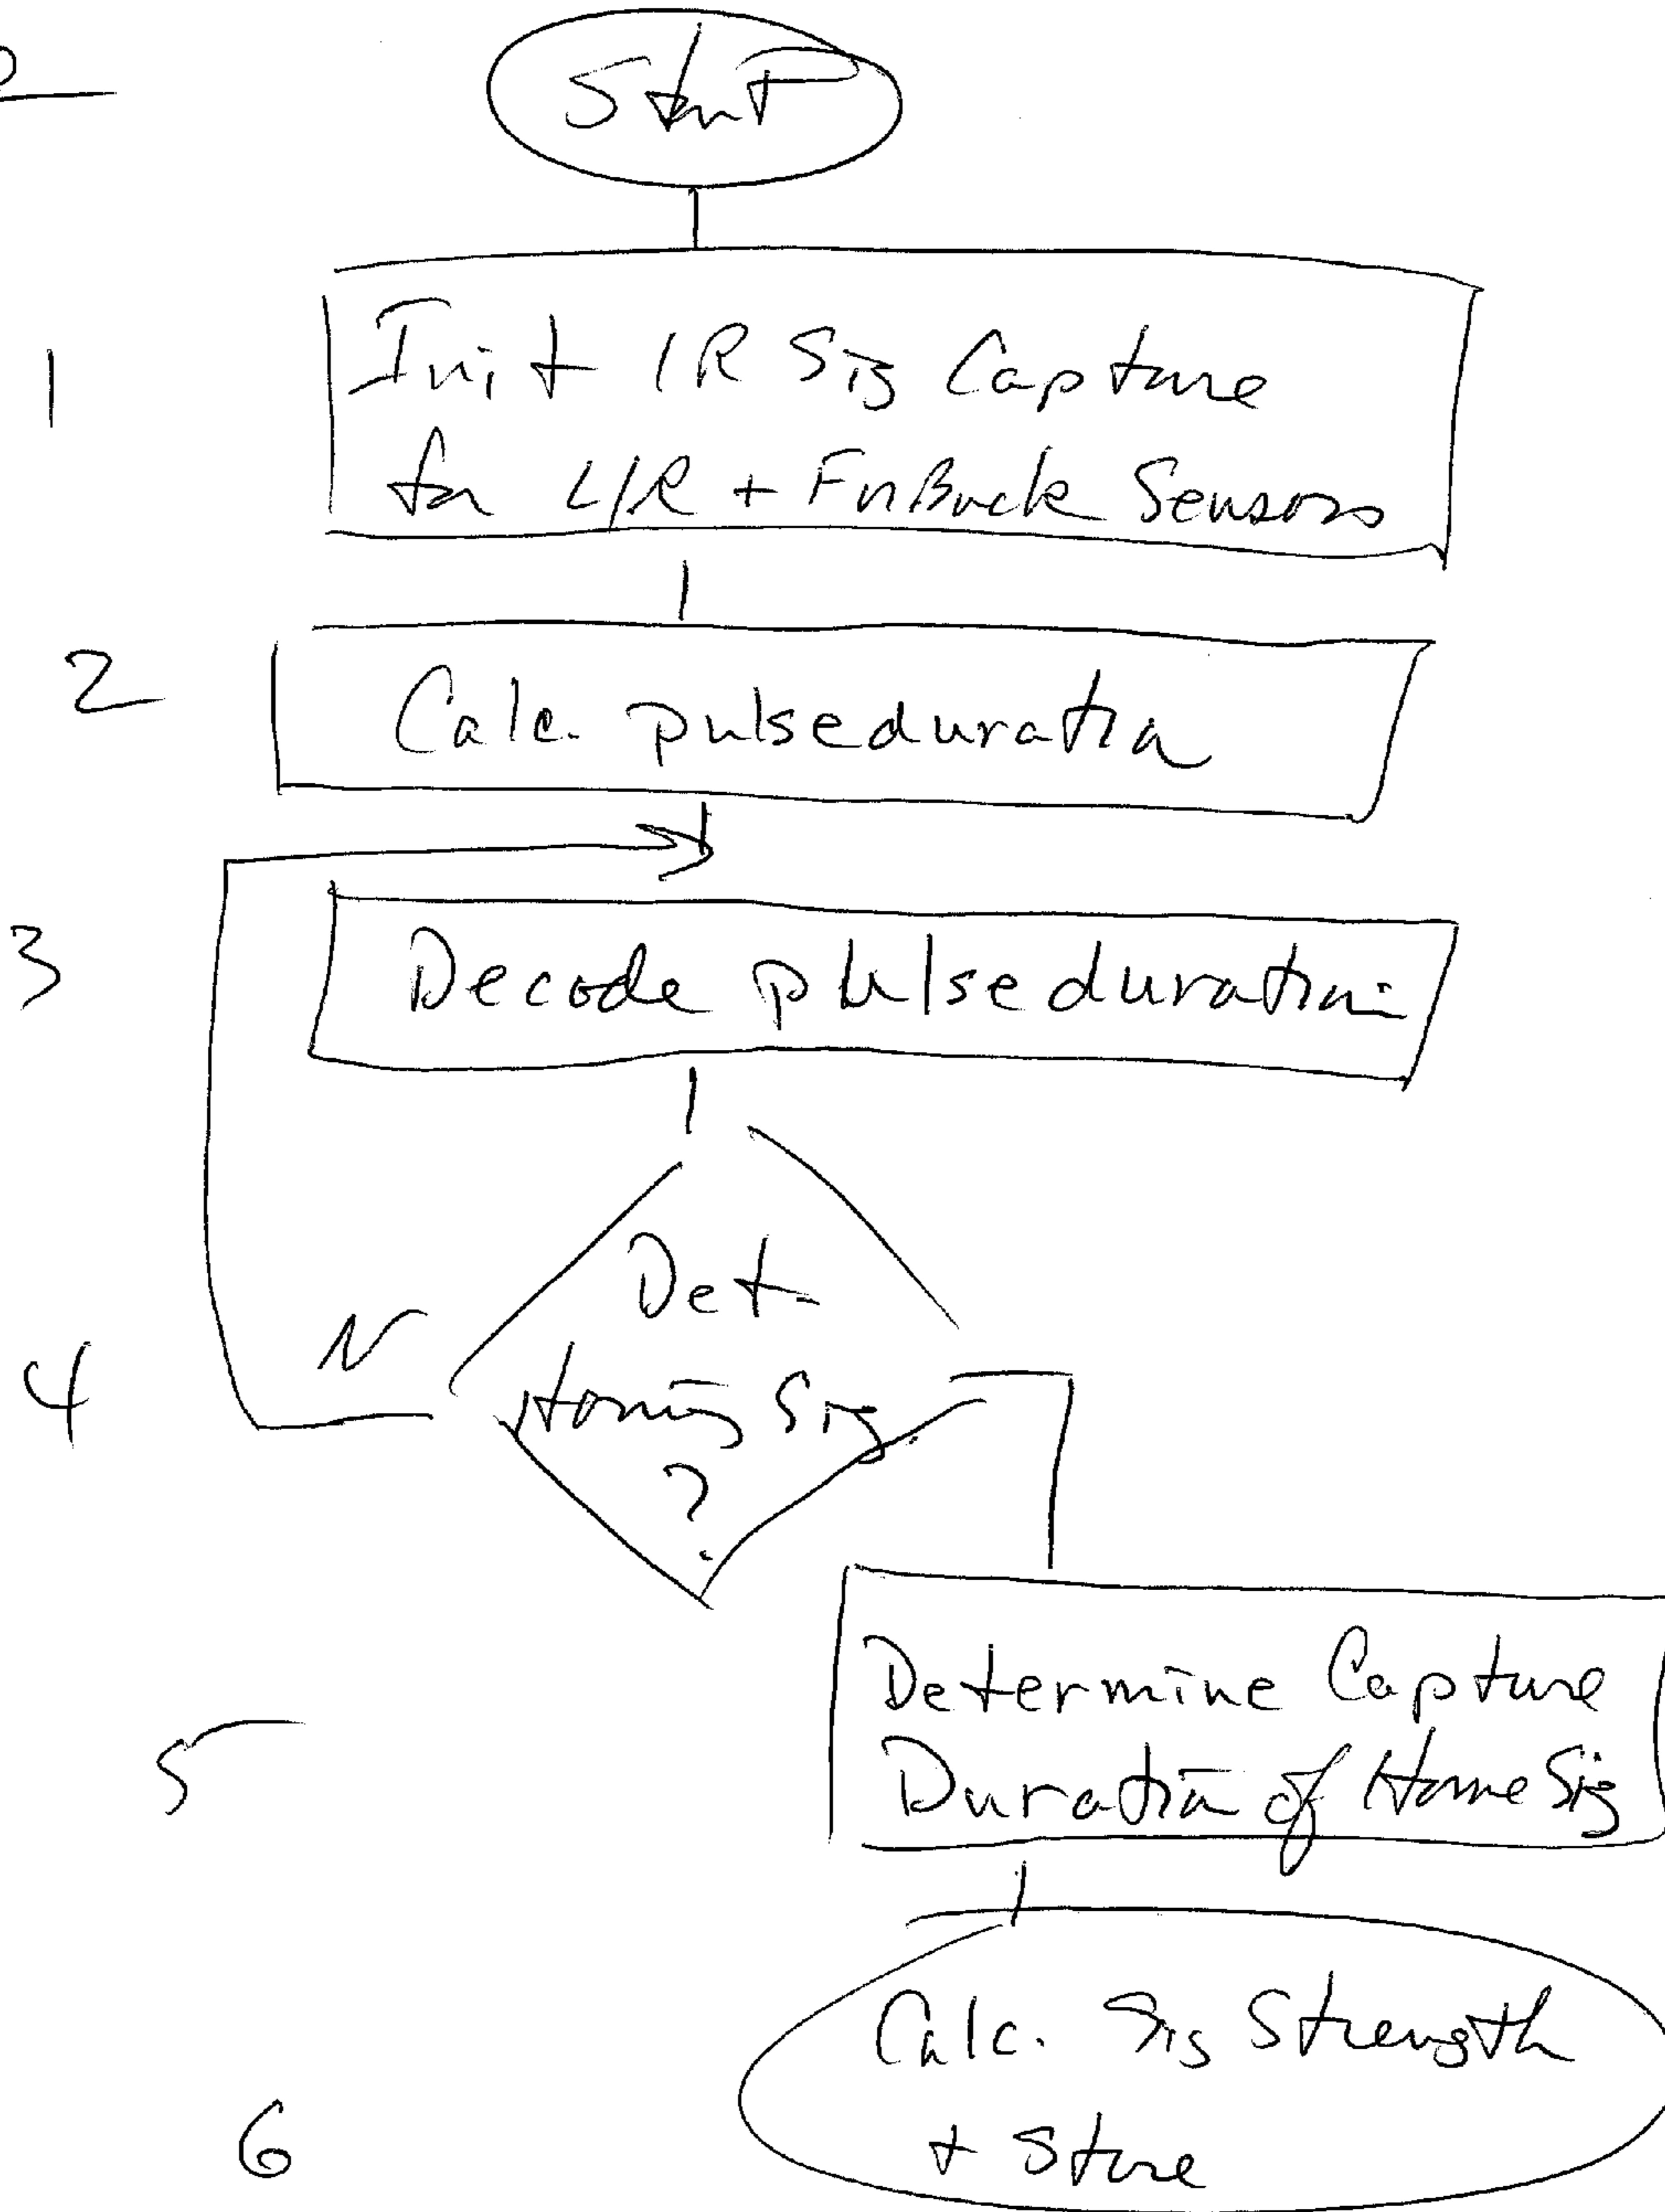 Start
1
Init IR Sig Capture
for L/R + Fr/Back Sensors
2
Calc. pulse duration
3
Decode pulse duration
4
N
Det
Homing Sig.
?
5
Determine Capture
Duration of Home Sig
6
Calc. Sig Strength
+ Store